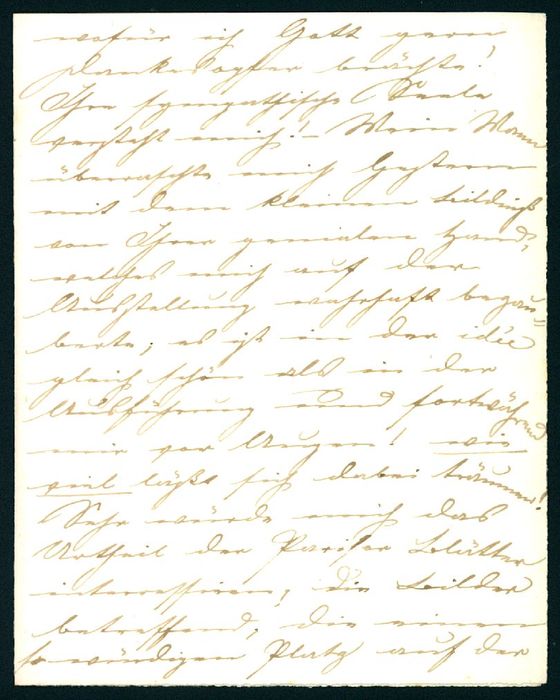 wofür ich Gott gern
Dankesopfer brächte!
Ihre sympathische Seele
versteht mich! – Mein Mann
überraschte mich Gestern
mit dem kleinen Bildniß
von Ihrer genialen Hand,
welches mich auf der
Ausstellung wahrhaft bezau=
berte; es ist in der idée
gleich schön als in der
Ausführung und fortwährend
mir vor Augen! wie
viel läßt sich dabei träumen!
Sehr würde mich das
Urtheil der Pariser Blätter
interressiren, die Bilder
betreffend, die einen
so würdigen Platz auf der